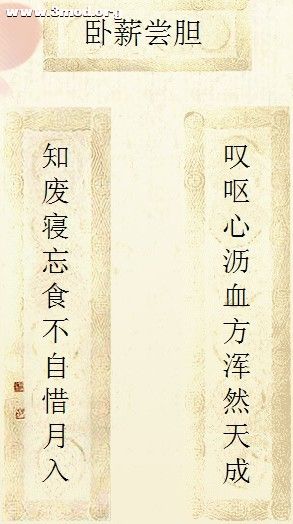 www.3mod.org
卧薪尝胆
叹呕心沥血方浑然天成
知废寝忘食不自惜月入